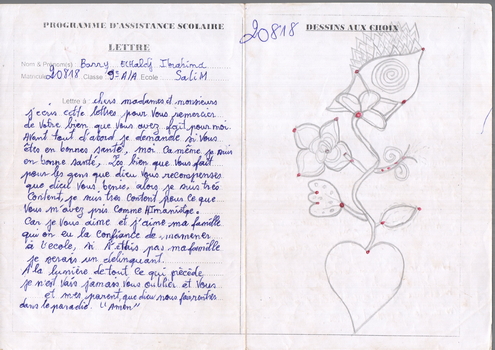 PROGRAMME D'ASSISTANCE SCOLAIRE
LETTRE
Nom & Prénom(s) Barry Ibrahima
Matricule 20818 Classe 9e A/A Ecole SaliM
Lettre à : chers madames et monsieurs
j'ecris cette lettres pour vous remercier
de votre bien que vous avez fait pour moi.
Avant tout d'abord je demande si vous
êtes en bonnes santé, moi ca même je suis
en bonne santé, Les bien que vous fait
pour les gens que dieu vous recompenses
que dieu vous benis, alors je suis très
content, je suis tres content pour ce que
vous m'avez pris comme
Car je vous aime et j'aime ma famille
qui on eu la confiance de mamenés
à l'ecole, si n'etais pas ma famille
je serais un delinquant.
A la lumière de tout ce qui précède,
je n'est vais jamais vous oublier et vous
et mes parent, que dieu nous
dans le paradie. "Amen"
20818
DESSINS AUX CHOIX